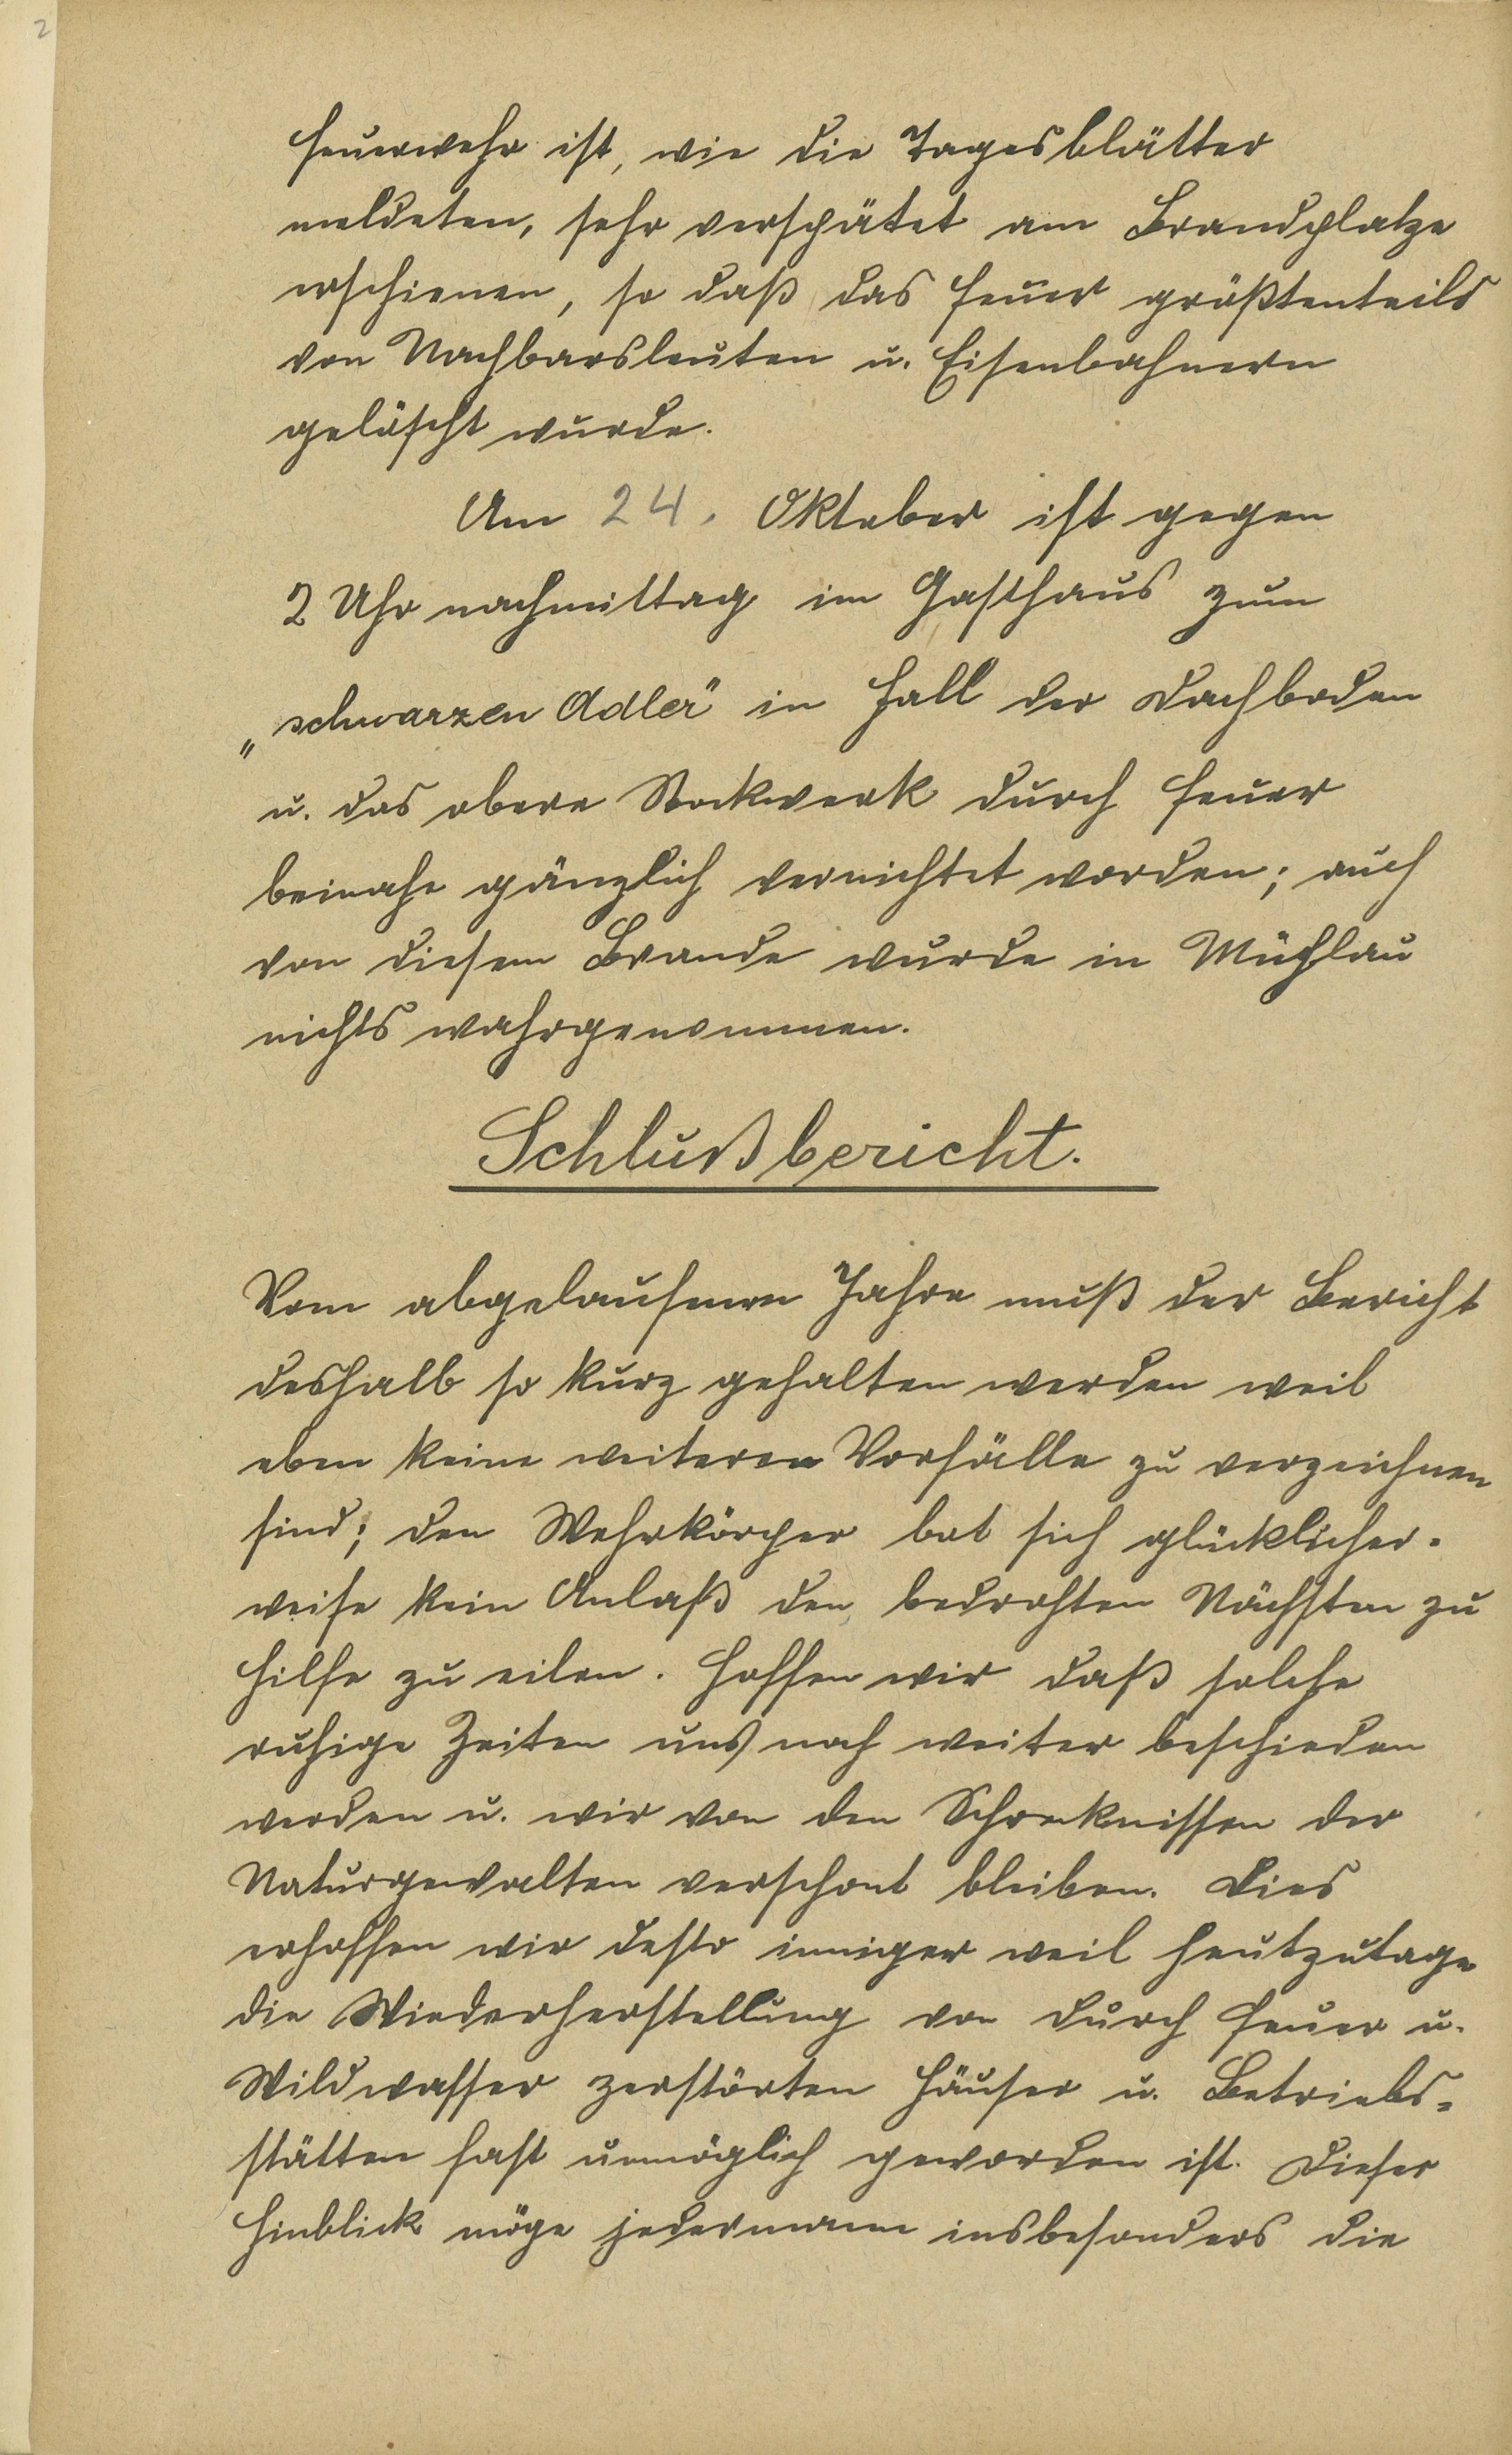 2
Feuerwehr ist, wie die Tagesblätter
meldeten, sehr verspätet am Brandplatze
erschienen, so daß das Feuer größtenteils
von Nachbarsleuten u. Eisenbahnern
gelöscht wurde.
Am 24. Oktober ist gegen
2 Uhr nachmittag im Gasthaus zum
„schwarzen Adler" in Hall der Dachboden
u. das obere Stockwerk durch Feuer
beinahe gänzlich vernichtet worden; auch
von diesem Brande wurde in Mühlau
nichts wahrgenommen.
Schlußbericht.
Vom abgelaufenen Jahre muß der Bericht
deshalb so kurz gehalten werden weil
eben keine weiteren Vorfälle zu verzeichnen
sind; den Wehrkörper bot sich glücklicher-
weise kein Anlaß den bedrohten Nächsten zu
Hilfe zu eilen. Hoffen wir daß solche
ruhige Zeiten uns noch weiter beschieden
werden u. wir von den Schrecknissen der
Naturgewalten verschont bleiben. Dies
erhoffen wir desto inniger weil heutzutage
die Wiederherstellung von durch Feuer u.
Wildwasser zerstörten Häuser u. Betriebs=
stätten fast unmöglich geworden ist. Dieser
Hinblick möge jedermann insbesonders die